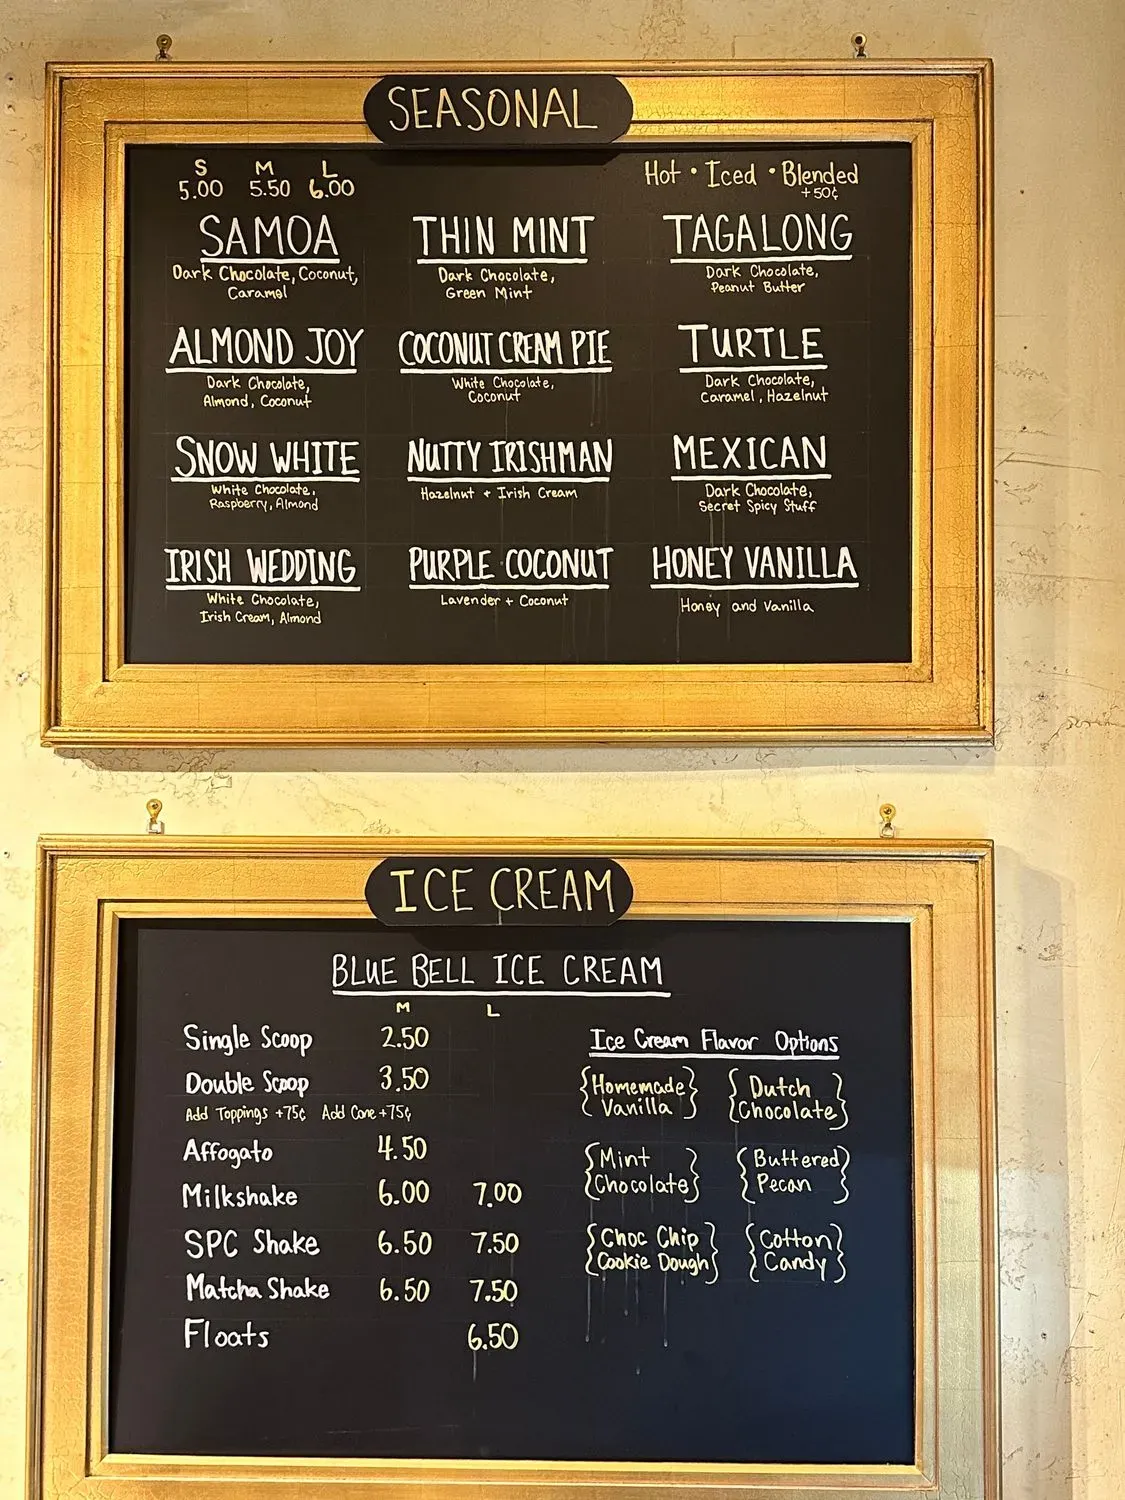 SEASONAL
S M L
5.00 5.50 6.00
Hot • Iced • Blended
+50¢
SAMOA
Dark Chocolate, Coconut,
Caramel
THIN MINT
Dark Chocolate,
Green Mint
TAGALONG
Dark Chocolate,
Peanut Butter
ALMOND JOY
Dark Chocolate,
Almond, Coconut
COCONUT CREAM PIE
White Chocolate,
Coconut
TURTLE
Dark Chocolate,
Caramel, Hazelnut
SNOW WHITE
White Chocolate,
Raspberry, Almond
NUTTY IRISHMAN
Hazelnut + Irish Cream
MEXICAN
Dark Chocolate,
Secret Spicy Stuff
IRISH WEDDING
White Chocolate,
Irish Cream, Almond
PURPLE COCONUT
Lavender + Coconut
HONEY VANILLA
Honey and Vanilla
ICE CREAM
BLUE BELL ICE CREAM
M L
Single Scoop 2.50
Double Scoop 3.50
Add Toppings +75¢ Add Cone +75¢
Affogato 4.50
Milkshake 6.00 7.00
SPC Shake 6.50 7.50
Matcha Shake 6.50 7.50
Floats 6.50
Ice Cream Flavor Options
{Homemade}
{Vanilla}
{Dutch}
{Chocolate}
{Mint}
{Chocolate}
{Buttered}
{Pecan}
{Choc Chip}
{Cookie Dough}
{Cotton}
{Candy}